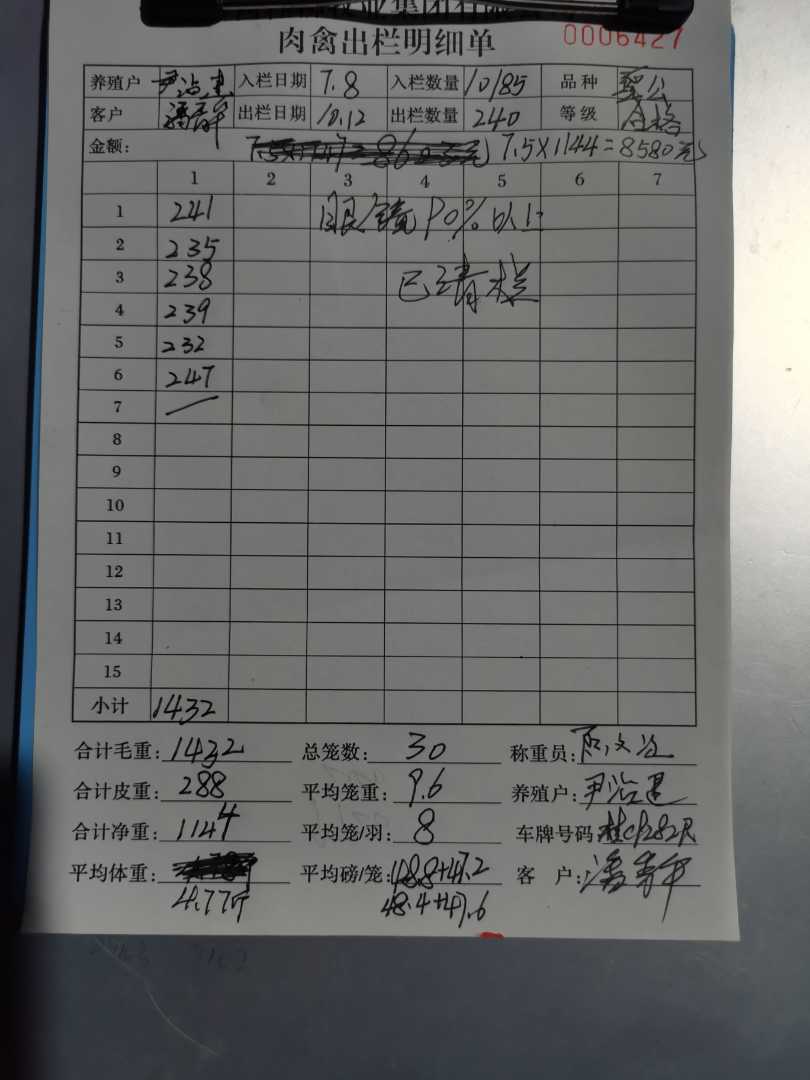 牧业集团有限
肉禽出栏明细单 0006427
养殖户 入栏日期 7.8 入栏数量 10185 品种
客户 出栏日期 10.12 出栏数量 240 等级 合格
金额: 7.5×1144=8580元
1 2 3 4 5 6 7
1 241 眼镜90%以上
2 235
3 238 已清栏
4 239
5 232
6 247
7
8
9
10
11
12
13
14
15
小计 1432
合计毛重: 1432 总笼数: 30 称重员:
合计皮重: 288 平均笼重: 9.6 养殖户: 尹
合计净重: 1144 平均笼/羽: 8 车牌号码
平均体重: 平均磅/笼: 48.8+47.2 客 户: 潘
4.77斤 48.4+47.6